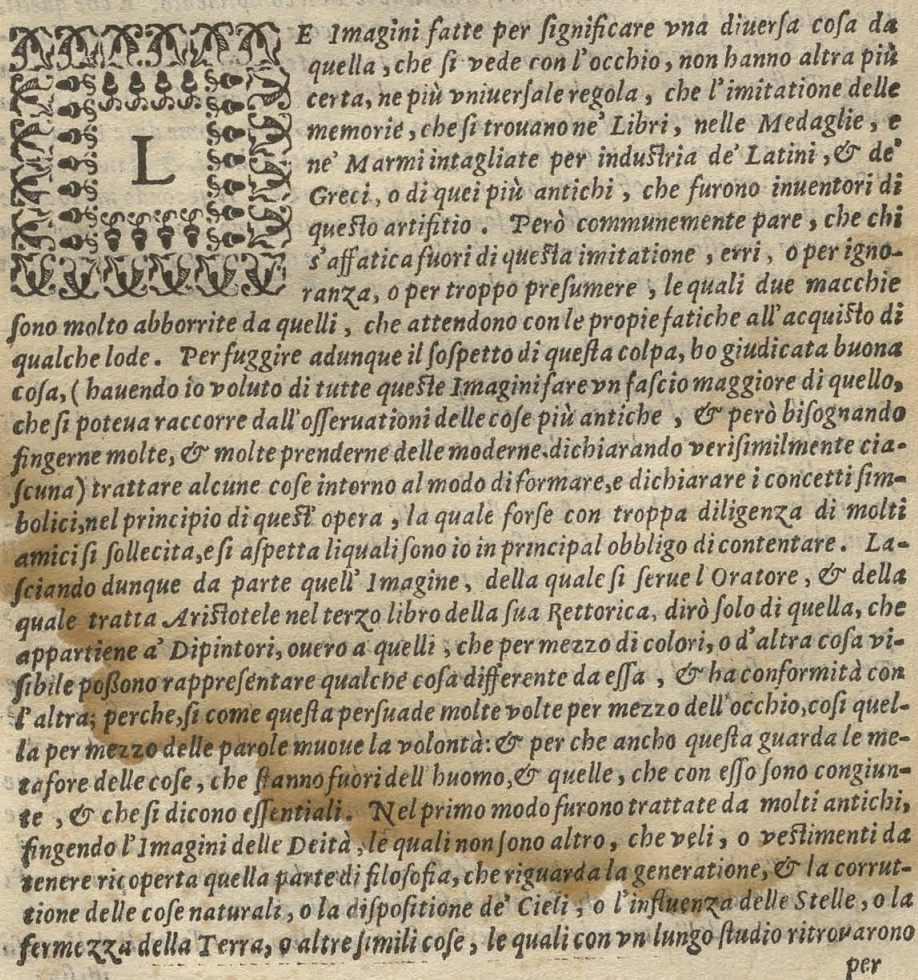 LE Imagini fatte per ſignificare vna diuerſa coſa da
quella, che ſi vede con l'occhio, non hanno altra più
certa, ne più vniuerſale regola, che l'imitatione delle
memorie, che ſi trouano ne' Libri, nelle Medaglie, e
ne' Marmi intagliate per induſtria de' Latini, & de'
Greci, o di quei più antichi, che furono inuentori di
queſto artifitio. Però communemente pare, che chi
s'affatica fuori di queſta imitatione, erri, o per igno-
ranza, o per troppo preſumere, le quali due macchie
ſono molto abborrite da quelli, che attendono con le propie fatiche all'acquiſto di
qualche lode. Per fuggire adunque il ſoſpetto di queſta colpa, ho giudicata buona
coſa, (hauendo io voluto di tutte queſte Imagini fare vn faſcio maggiore di quello,
che ſi poteua raccorre dall'oſſeruationi delle coſe più antiche, & però biſognando
fingerne molte, & molte prenderne delle moderne, dichiarando veriſimilmente cia-
ſcuna) trattare alcune coſe intorno al modo di formare, e dichiarare i concetti ſim-
bolici, nel principio di queſt' opera, la quale forſe con troppa diligenza di molti
amici ſi ſollecita, e ſi aſpetta li quali ſono io in principal obbligo di contentare. La-
ſciando dunque da parte quell' Imagine, della quale ſi ſerue l'Oratore, & della
quale tratta Ariſtotele nel terzo libro della ſua Rettorica, dirò ſolo di quella, che
appartiene a' Dipintori, ouero a quelli, che per mezzo di colori, o d'altra coſa vi-
ſibile poßono rappreſentare qualche coſa differente da eſſa, & ha conformità con
l'altra; perche, ſi come queſta perſuade molte volte per mezzo dell'occhio, coſi quel-
la per mezzo delle parole muoue la volontà: & per che ancho queſta guarda le me-
tafore delle coſe, che ſtanno fuori dell huomo, & quelle, che con eſſo ſono congiun-
te, & che ſi dicono eſſentiali. Nel primo modo furono trattate da molti antichi,
fingendo l'Imagini delle Deità, le quali non ſono altro, che veli, o veſtimenti da
tenere ricoperta quella parte di filoſofia, che riguarda la generatione, & la corrut-
tione delle coſe naturali, o la diſpoſitione de' Cieli, o l'influenza delle Stelle, o la
fermezza della Terra, o altre ſimili coſe, le quali con vn lungo ſtudio ritrouarono
per